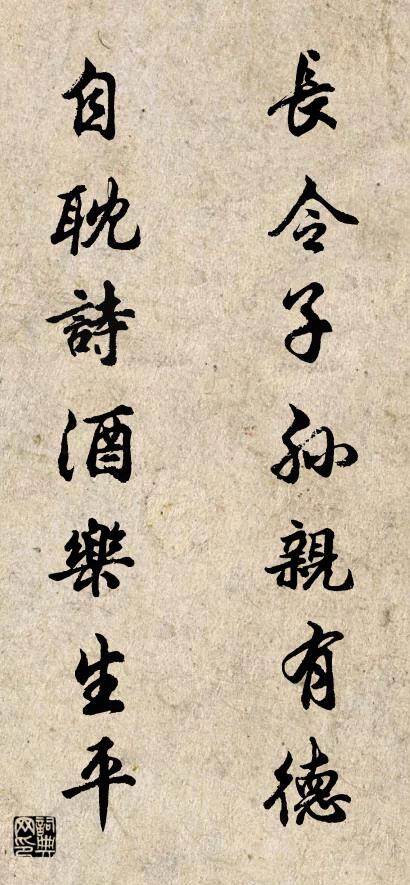 長令子孫親有德
自耽詩酒樂生平
詞典網印